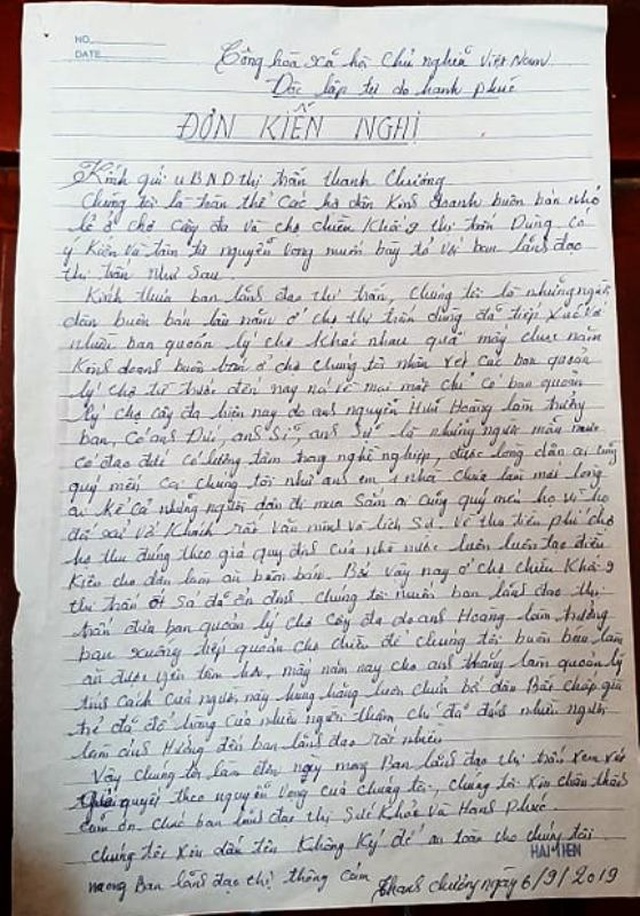 NO.
DATE
Cộng hòa xã hội chủ nghĩa Việt Nam
Độc lập tự do hạnh phúc
ĐƠN KIẾN NGHỊ
Kính gửi UBND thị trấn Thanh Chương
Chúng tôi là toàn thể các hộ dân kinh doanh buôn bán nhỏ
lẻ ở chợ cây đa và chợ chiều khối 9 thị trấn Dùng có
ý kiến và tâm tư nguyện vọng muốn bày tỏ với ban lãnh đạo
thị trấn như sau.
Kính thưa ban lãnh đạo thị trấn, chúng tôi là những người
dân buôn bán lâu năm ở chợ thị trấn dùng đã tiếp xúc với
nhiều ban quản lý chợ khác nhau quá mấy chục năm
kinh doanh buôn bán ở chợ chúng tôi nhận xét các ban quản
lý chợ từ trước đến nay nó rẽ mai mặt chỉ có ban quản
lý chợ cây đa hiện nay do anh nguyễn Hữu Hoàng làm trưởng
ban, có anh Đúi, anh Sĩ, anh Sử là những người mẫu mực
có đạo đức có lương tâm trong nghề nghiệp, được lòng dân ai cũng
quý mến coi chúng tôi như anh em 1 nhà chưa làm mất lòng
ai kể cả những người dân đi mua sắm ai cũng quý mến họ vì họ
đối xử với khách rất văn minh và lịch sự. Về thu tiền phí chợ
họ thu đúng theo giá quy định của nhà nước luôn luôn tạo điều
kiện cho dân làm ăn buôn bán. Bởi vậy nay ở chợ chiều khối 9
thị trấn cơ sở đã ổn định chúng tôi muốn ban lãnh đạo thị
trấn đưa ban quản lý chợ cây đa do anh Hoàng làm trưởng
ban xuống tiếp quản chợ chiều để chúng tôi buôn bán làm
ăn được yên tâm hơn, mấy năm nay cho anh thắng làm quản lý
tính cách của người này hung hăng luôn chửi bới dân Bất chấp già
trẻ đã đổ hàng của nhiều người thậm chí đã đánh nhiều người
làm ảnh Hưởng đến ban lãnh đạo rất nhiều.
Vậy chúng tôi làm đơn này mong Ban lãnh đạo thị trấn xem xét
giải quyết theo nguyện vọng của chúng tôi, chúng tôi xin chân thành
cảm ơn. chúc ban lãnh đạo thị Sức Khỏe và Hạnh Phúc.
chúng tôi xin dấu tên không ký để an toàn cho chúng tôi
HAI TIEN
mong Ban lãnh đạo thị thông cảm Thanh chương ngày 6/9/2019